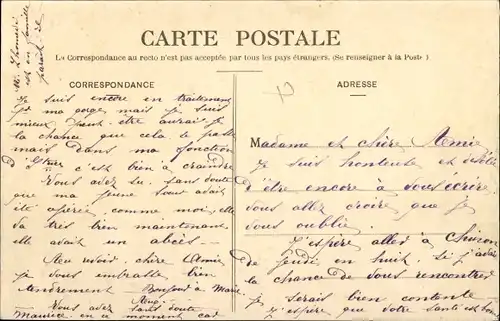 CARTE POSTALE
La Correspondance au recto n'est pas acceptée par tous les pays étrangers. (Se renseigner à la Poste)
CORRESPONDANCE
ADRESSE
Madame et chère Amie
Je suis honteuse et désolée
d'être encore à vous écrire
vous allez croire que je
vous oublie.
J'espère aller à Chinon
de jeudi en huit. Si j'avais
la chance de vous rencontrer
je serais bien contente
J'espère que votre santé est bonne
Je suis encore en traitement
ma gorge mais je suis
mieux peut-être aurai je
la chance que cela se passe
mais dans ma fonction
d' c'est bien à craindre
Vous avez su sans doute
que ma jeune soeur avait
été opérée comme moi, elle
va très bien maintenant
elle avait un abcès
Au revoir chère Amie
je vous embrasse bien
tendrement Bonjour à Marie
Vous avez sans doute
Maurice en ce moment car
M. Thomas
est en famille
paraît-il